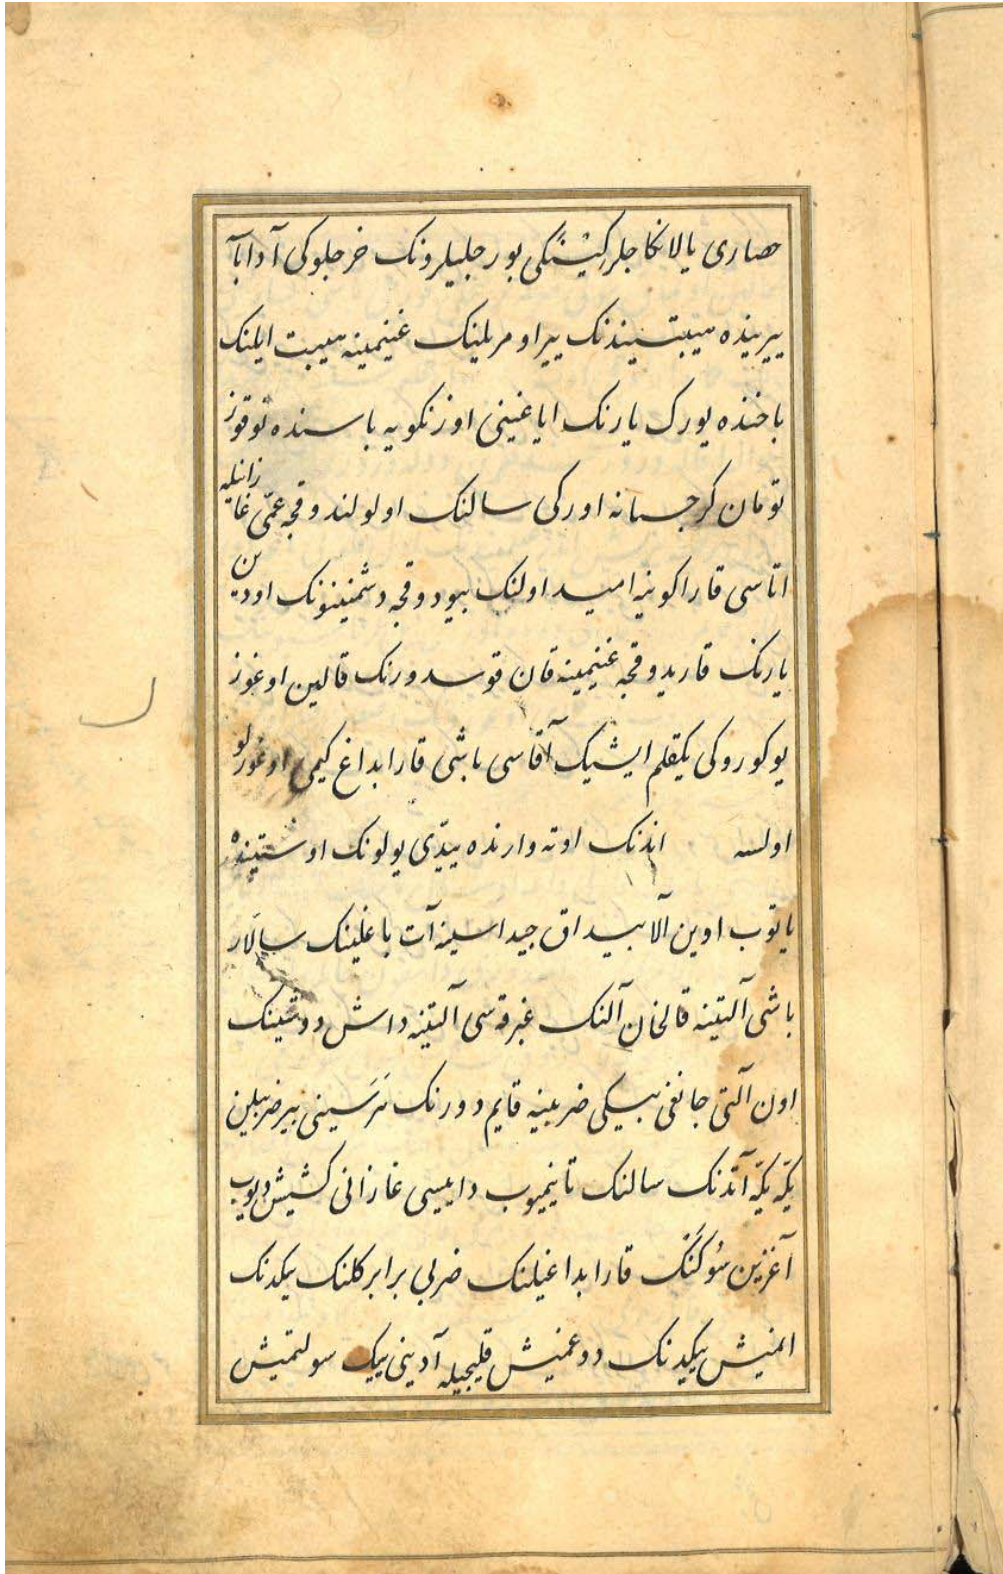 حصاری یالانکاجلر کیشنکی بورجلیلرونک خرجلوکی آدابآ
ییرینده هیبتیندنک ییر اومریلینک غنیمینه هیبت ایلنک
باخنده یورک یارنک ایاغینی اوزنکویه باسنده توقوز
تومان کرجستانه اورکی سالنک اولولندوقجه عمّی غازانیله
اتاسی قاراکونیه امید اولنک بیودوقجه دشمنینونک اودین
یارنک قاریدوقجه غنیمینه قان قوسدورنک قالین اوغوز
یوکوروکی یکقلم ایشیک آقاسی باشی قارابداغ کیمی اوغورلو
اولسه اندنک اوته وارنده ییدّی یولونک اوستینده
یاتوب اوین آلا بیداق جیداسینه آت باغلینک سالار
باشی آلتینه قالخان آلنک غبرقه سی آلتینه داش دوشینک
اون آلتی جانغی بیکی ضربینه قایم دورنک نرسینی بیر ضربیلن
یکّه یکّه آتدنک سالنک تانیمیوب داییسی غازانی کشیش دیوب
آغزین سُوکَنَک قارابداغیلنک ضربی برابر کلنک ییکدنک
امنیش ییکیدنک دوغمیش قلیجیله آدینی ییک سولتمیش